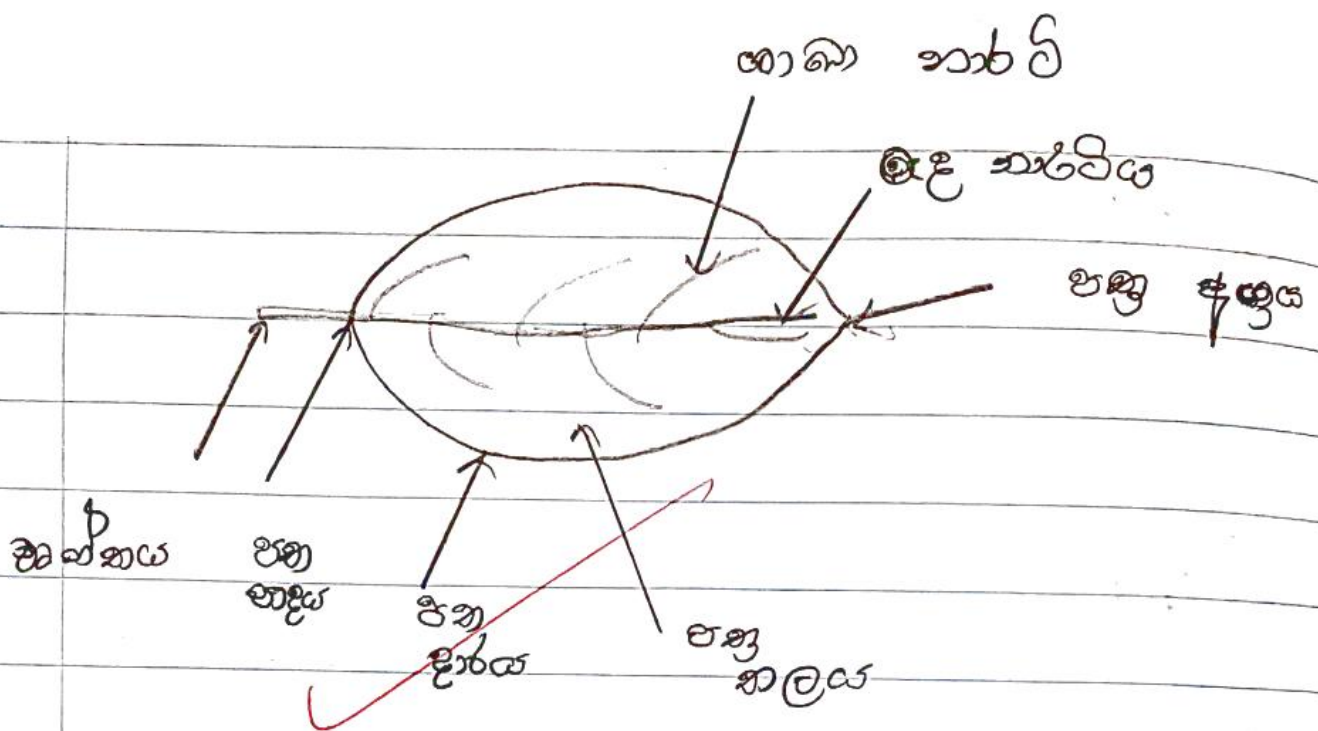 ශාඛා නාරටි
මැද නාරටිය
පත්‍ර අග්‍රය
වෘන්තය
පත්‍ර
පාදය
පත්‍ර
දාරය
පත්‍ර
තලය